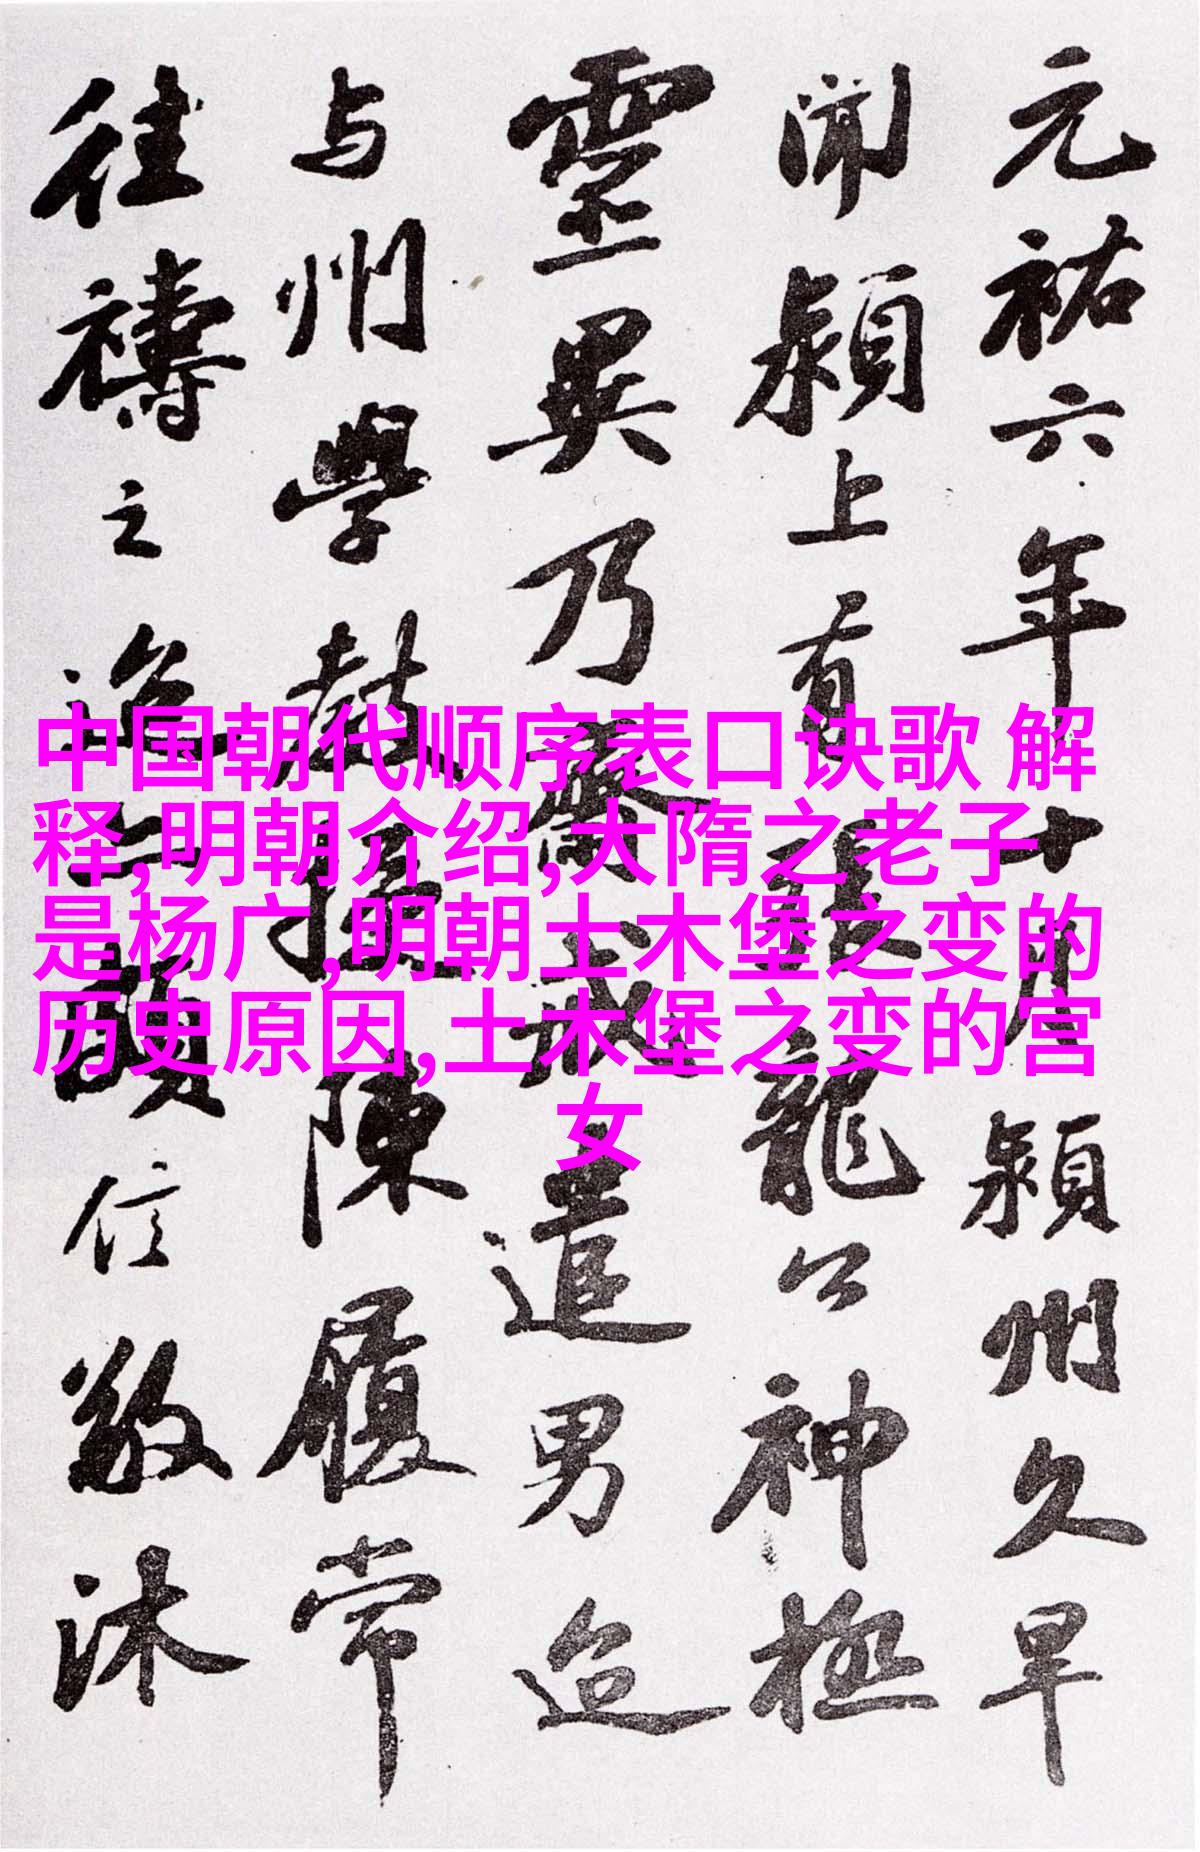 元祐六年十月潁州久旱
聞潁上有張龍公神極
靈異乃齋戒遣男迨
与州學教授陳履常
往禱之迨亦頗信敬沐
中国朝代顺序表口诀歌 解
释,明朝介绍,大隋之老子
是杨广,明朝土木堡之变的
历史原因,土木堡之变的宫
女